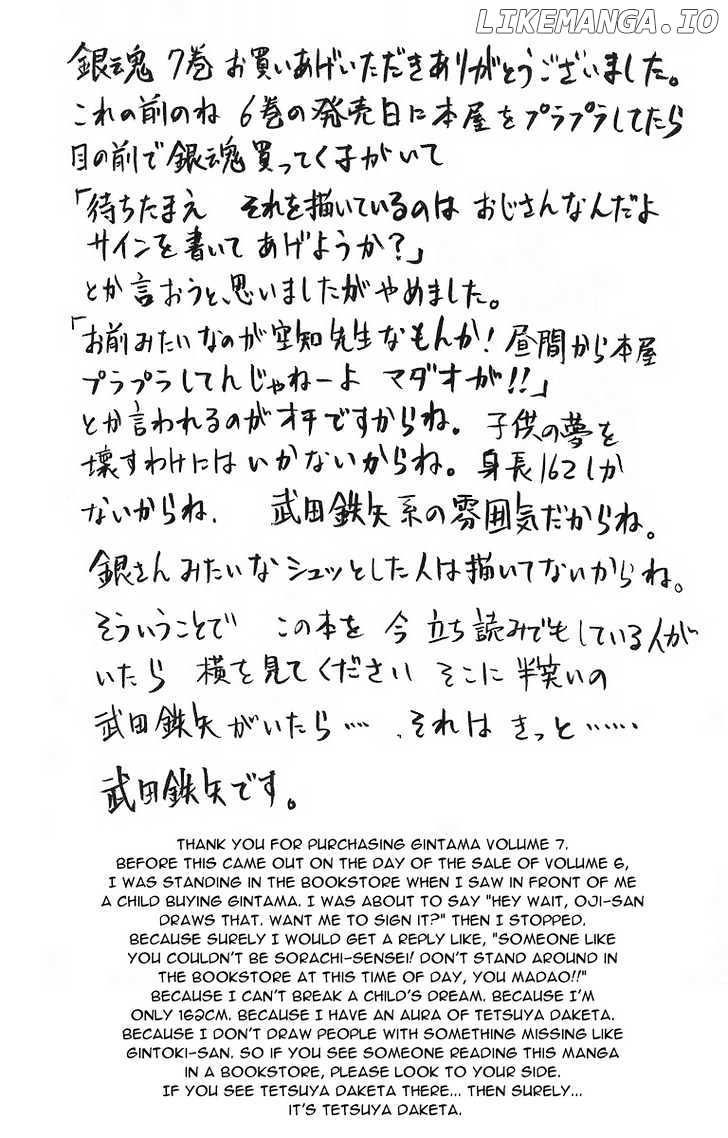 LIKEMANGA.IO
銀魂 7巻 お買いあげいただきありがとうございました。
これの前のね 6巻の発売日に本屋をプラプラしてたら
目の前で銀魂買ってく子がいて
「待ちたまえ それを描いているのは おじさんなんだよ
サインを書いて あげようか?」
とか言おうと、思いましたがやめました。
「お前みたいなのが空知先生なもんか! 昼間から本屋
プラプラしてんじゃねーよ マダオが!!」
とか言われるのがオチですからね。子供の夢を
壊すわけにはいかないからね。身長162しか
ないからね. 武田鉄矢系の雰囲気だからね。
銀さんみたいなシュッとした人は描いてないからね。
そういうことで この本を 今 立ち読みでもしている人が
いたら 横を見てください そこに半笑いの
武田鉄矢がいたら…. それは きっと……
武田鉄矢です。
THANK YOU FOR PURCHASING GINTAMA VOLUME 7.
BEFORE THIS CAME OUT ON THE DAY OF THE SALE OF VOLUME 6,
I WAS STANDING IN THE BOOKSTORE WHEN I SAW IN FRONT OF ME
A CHILD BUYING GINTAMA. I WAS ABOUT TO SAY "HEY WAIT, OJI-SAN
DRAWS THAT. WANT ME TO SIGN IT?" THEN I STOPPED.
BECAUSE SURELY I WOULD GET A REPLY LIKE, "SOMEONE LIKE
YOU COULDN'T BE SORACHI-SENSEI! DON'T STAND AROUND IN
THE BOOKSTORE AT THIS TIME OF DAY, YOU MADAO!!"
BECAUSE I CAN'T BREAK A CHILD'S DREAM. BECAUSE I'M
ONLY 162CM. BECAUSE I HAVE AN AURA OF TETSUYA DAKETA.
BECAUSE I DON'T DRAW PEOPLE WITH SOMETHING MISSING LIKE
GINTOKI-SAN. SO IF YOU SEE SOMEONE READING THIS MANGA
IN A BOOKSTORE, PLEASE LOOK TO YOUR SIDE.
IF YOU SEE TETSUYA DAKETA THERE... THEN SURELY...
IT'S TETSUYA DAKETA.